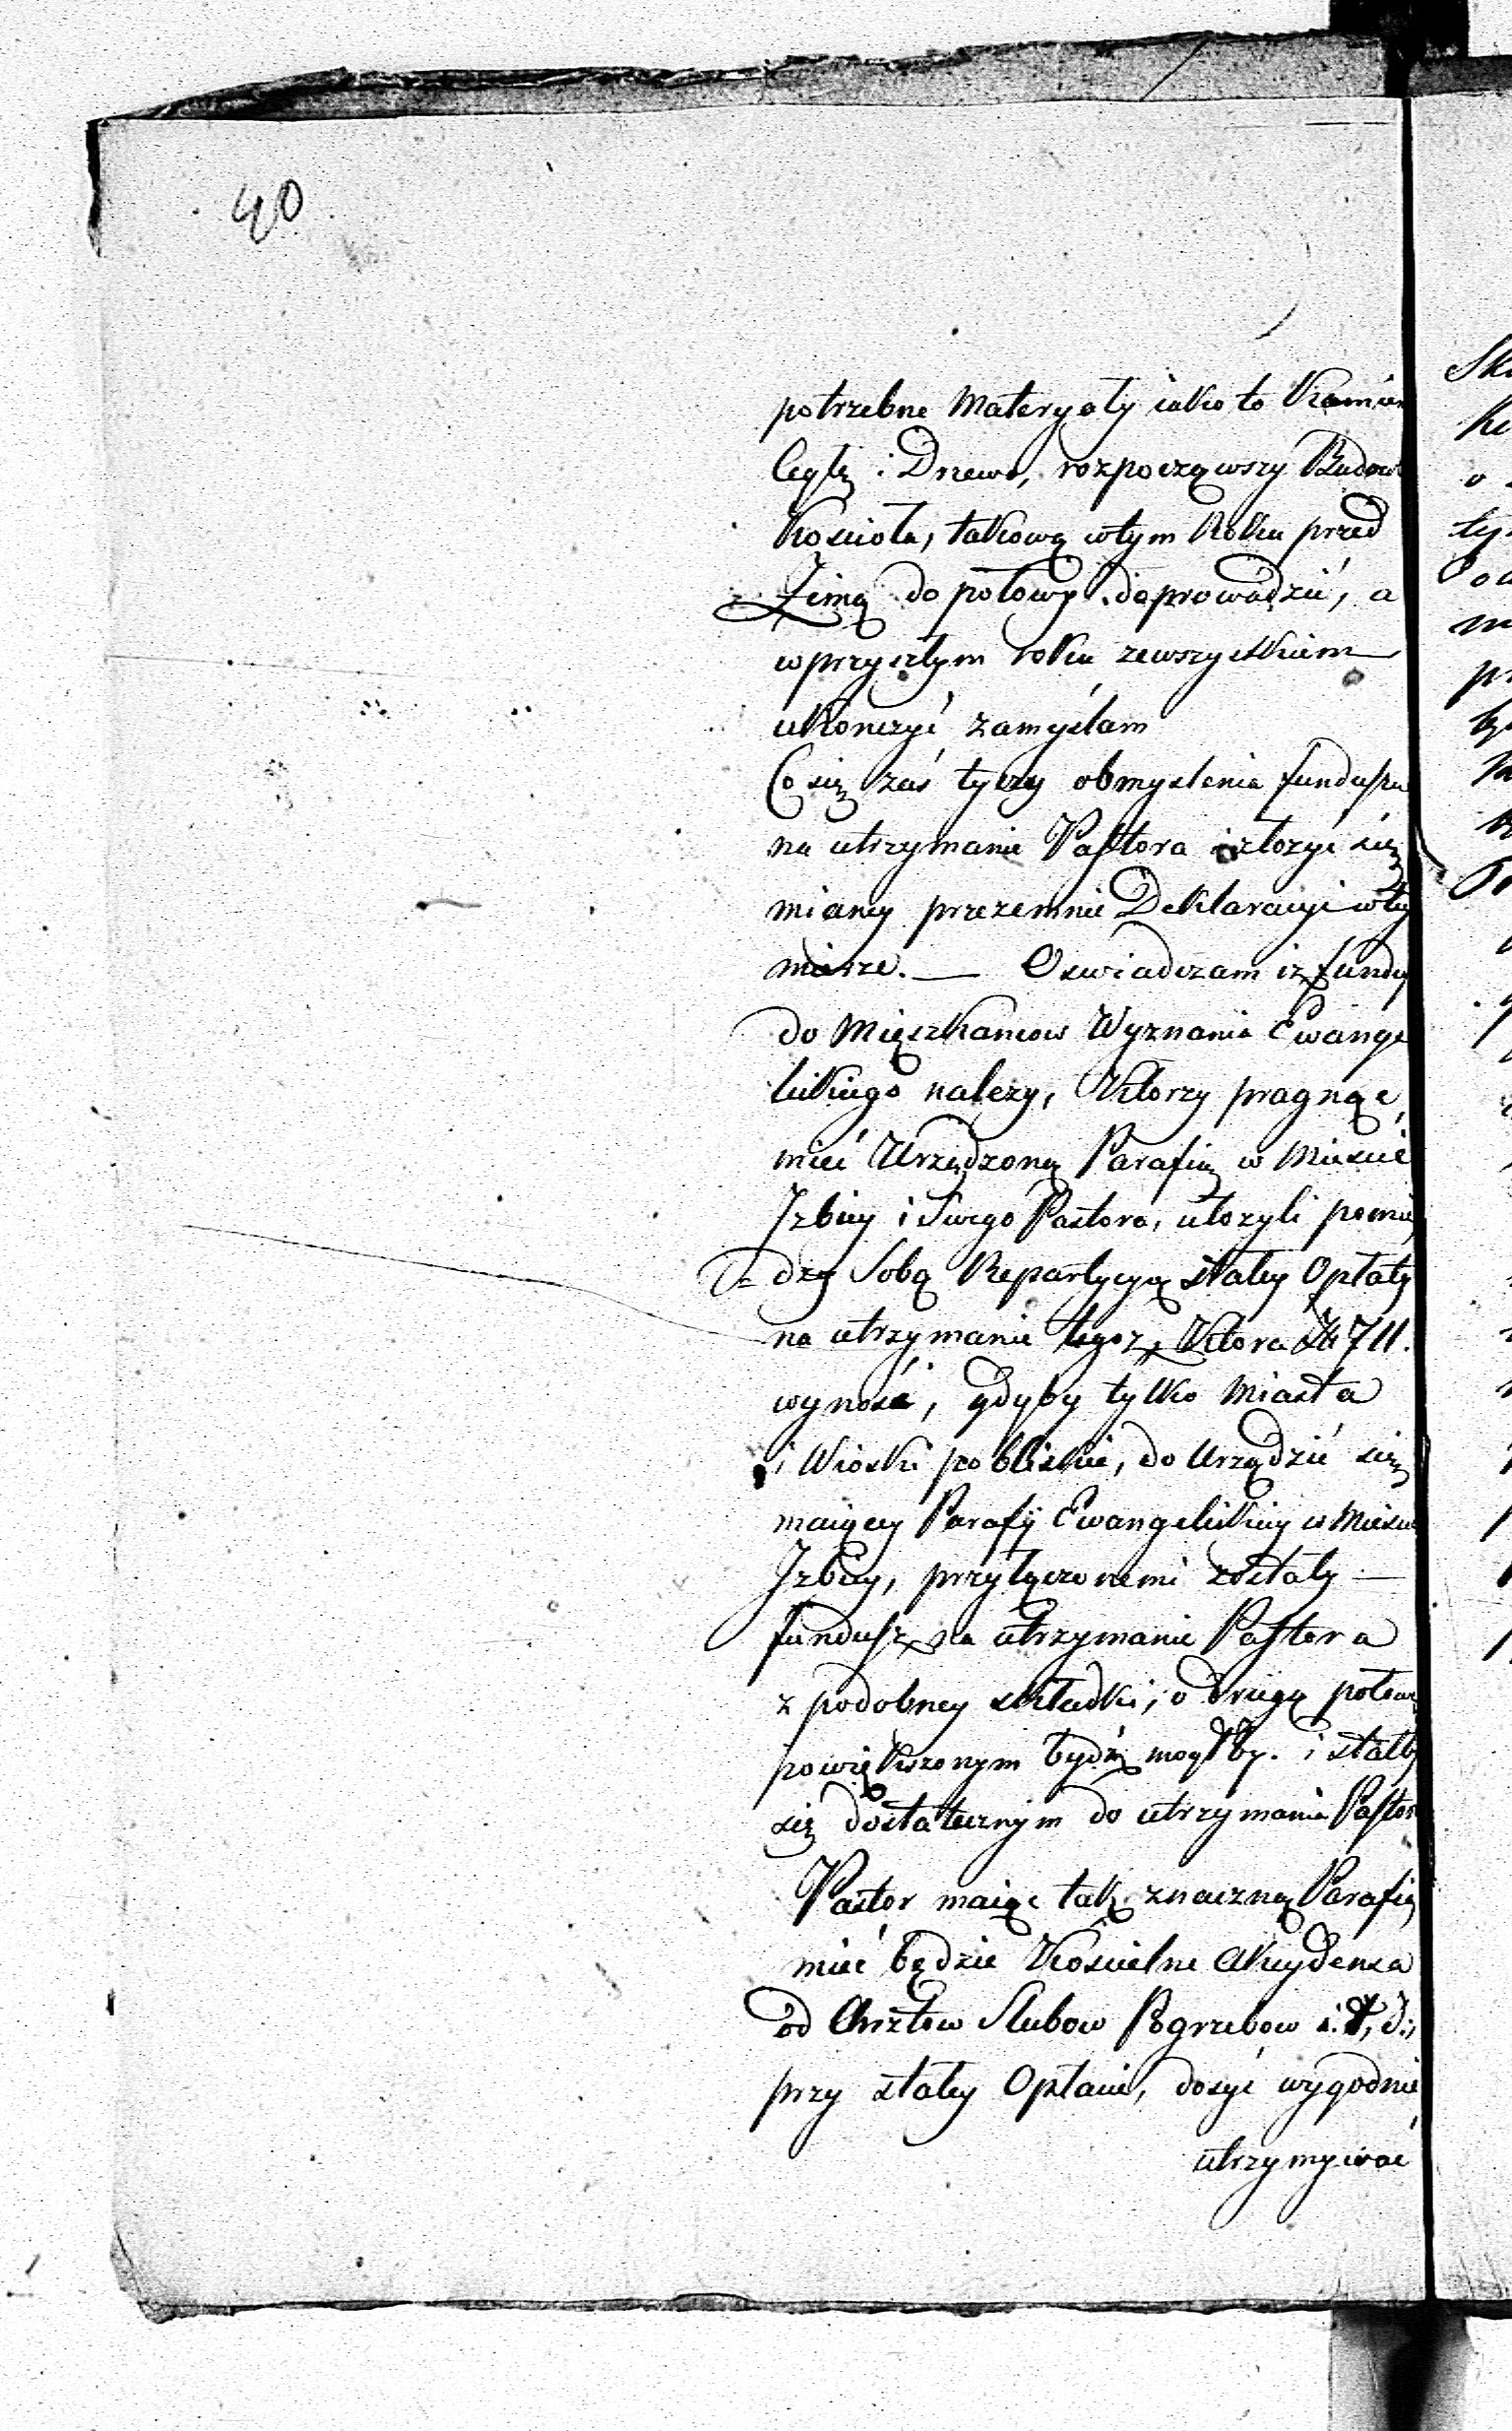 40
potrzebne Materyały iako to Kamień
Cegłę i Drzewo, rozpocząwszy Budow
Kościoła, takową wtym Roku przed
Zimą do połowy doprowadzić, a
wprzyszłym roku zewszystkiem
ukonczyć zamyślam
Co się zaś tyczy obmyslenia funduszu
na utrzymanie Pastora i złozyć się
mianey przezemnie Deklaracyi wtey
mierze. — Oswiadczam iz fundu
do Mięszkancow Wyznania Ewange
lickiego nalezy, Ktorzy pragnąc
mieć Urządzoną Parafią w Miescie
Izbicy i Swego Pastora, ułozyli pomię
dzy Sobą Repartycyą stałey Opłaty
na utrzymanie tegoz, Ktora Zł 711.
wynosi, gdyby tylko Miasta
i Wioski pobliskie, do Urządzić się
maiącey Parafij Ewangelickiey w Miescie
Izbicy, przyłączonemi zostały —
fundusz na utrzymanie Pastora
z podobney składki, o drugą połowę
powiększonym bydź mogłby. i stałby
się dostatecznym do utrzymania Pastora
Pastor maiąc tak znaczną Parafią
mieć będzie Kościelne Akcydensa
od Chrztow Slubow Pogrzebow i. t. d.,
przy stałey Opłacie, dosyć wygodnie
utrzymywać